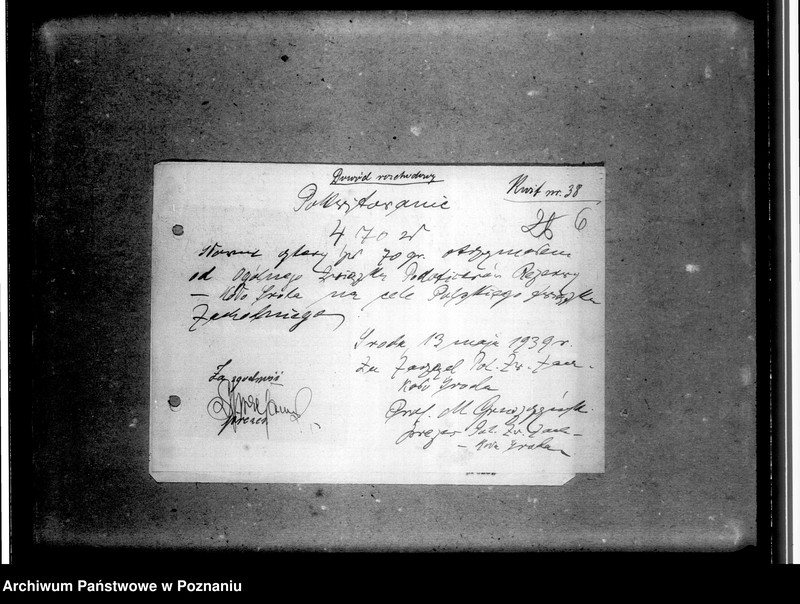 Dowód rozchodowy
Kwit nr. 38
Pokwitowanie
28 6
4 70 zł
Słownie cztery zł 70 gr. otrzymałem
od Ogólnego Związku Podoficerów Rezerwy
– Koło Środa na cele Polskiego Związku
Zachodniego
Środa 13 maja 1939 r.
Za Zarząd Pol. Zw. Zach.
Koło Środa
Za zgodność
Prof. M.
prezes
prezes Pol. Zw. Zach –
– Koła Środa
Archiwum Państwowe w Poznaniu